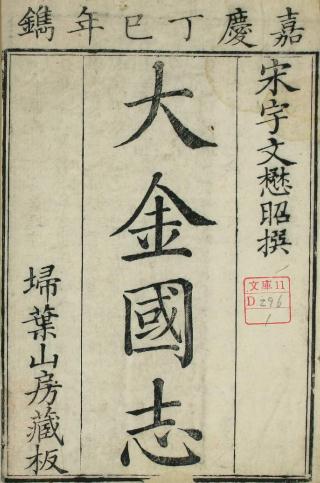 嘉慶丁巳年鐫
宋宇文懋昭撰
大金國志
埽葉山房藏板
文庫11
D296
1